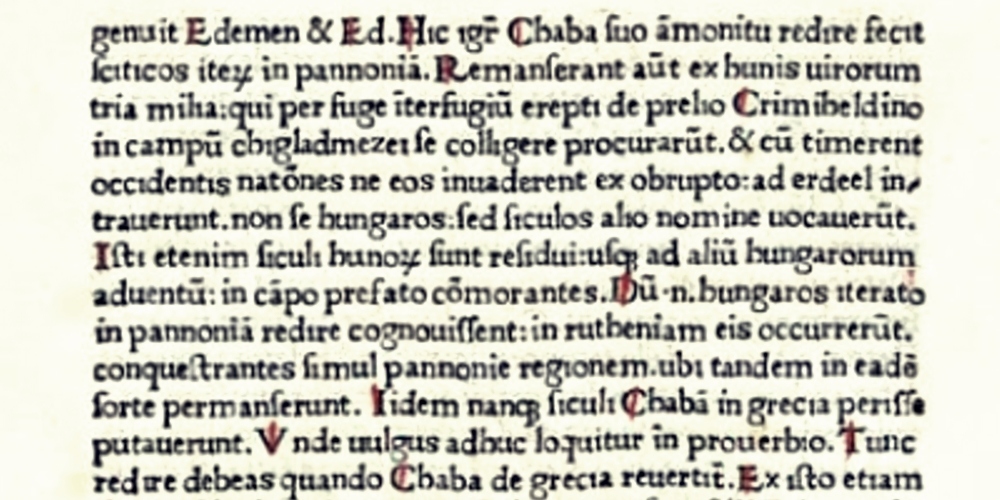 genuit Edemen & Ed. Hic igr̃ Chaba ſuo ãmonitu redire fecit
ſciticos iteꝝ in pannoniã. Remanſerant aũt ex hunis uirorum
tria milia: qui per fuge ĩterfugiũ erepti de prelio Crimiheldino
in campũ chigladmezei ſe colligere procurarũt. & cũ timerent
occidentis natõnes ne eos inuaderent ex obrupto: ad erdeel in⸗
trauerunt. non ſe hungaros: ſed ſiculos alio nomine uocauerũt.
Iſti etenim ſiculi hunoꝝ ſunt reſidui: uſqꝫ ad aliũ hungarorum
aduentũ: in cãpo prefato cõmorantes. Dũ .n. hungaros iterato
in pannoniã redire cognouiſſent: in rutheniam eis occurrerũt.
conqueſtrantes ſimul pannonie regionem. ubi tandem in eadẽ
ſorte permanſerunt. Iidem nanqꝫ ſiculi Chabã in grecia periſſe
putauerunt. V nde uulgus adhuc loquitur in prouerbio. Tunc
redire debeas quando Chaba de grecia reuertit̃. Ex iſto etiam